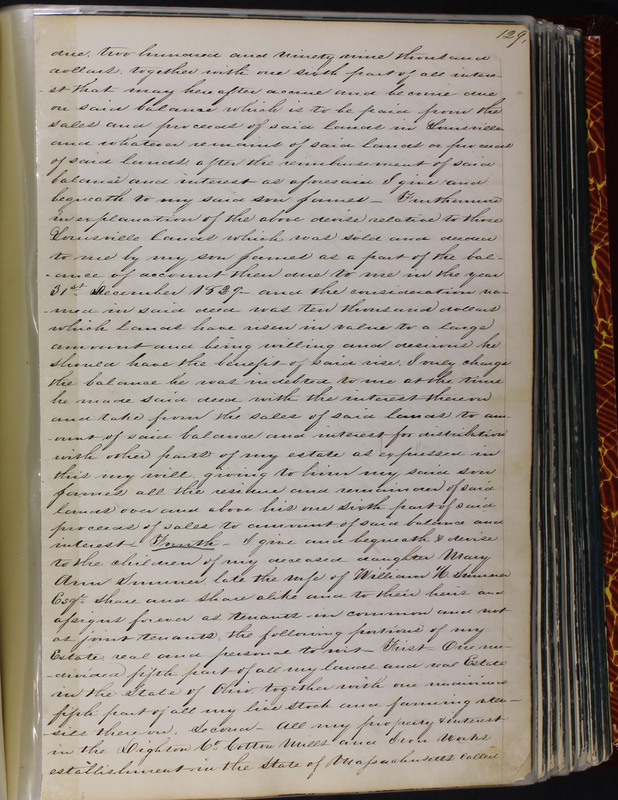 129,
due, two hundred and ninety nine thousand
dollars, together with one sixth part of all intere-
-st that may here after accrue and become due
on said balance which is to be paid from the
sales and proceeds of said lands in Louisville
and whatever remains of said lands or proceeds
of said lands, after the reimbursement of said
balance and interest as aforesaid I give and
bequeath to my said son James — Furthermore
in explanation of the above devise relative to those
Louisville lands which was sold and deeded
to me by my son James as a part of the bal-
-ance of account then due to me in the year
31st December 1839 — and the consideration na-
-med in said deed was ten thousand dollars
which lands have risen in value to a large
amount and being willing and desirous he
should have the benefit of said rise, I only charge
the balance he was indebted to me at the time
he made said deed with the interest thereon
and take from the sales of said lands to am-
-ount of said balance and interest for distribution
with other parts of my estate as expressed in
this my will, giving to him my said son
James all the residue and remainder of said
lands over and above his one sixth part of said
proceeds of sales to amount of said balance and
interest — Fourth — I give and bequeath & devise
to the children of my deceased daughter Mary
Ann Sumner, late the wife of William H. Sumner
Esqr. share and share alike and to their heirs and
assigns forever as tenants in common and not
as joint tenants, the following portions of my
Estate, real and personal to wit — First — One un-
-divided fifth part of all my lands and real Estate
in the State of Ohio together with one undivided
fifth part of all my live stock and farming uten-
-sils thereon, Second — All my property & interest
in the Dighton Co. Cotton Mills and Iron Works
establishment in the State of Massachusetts called